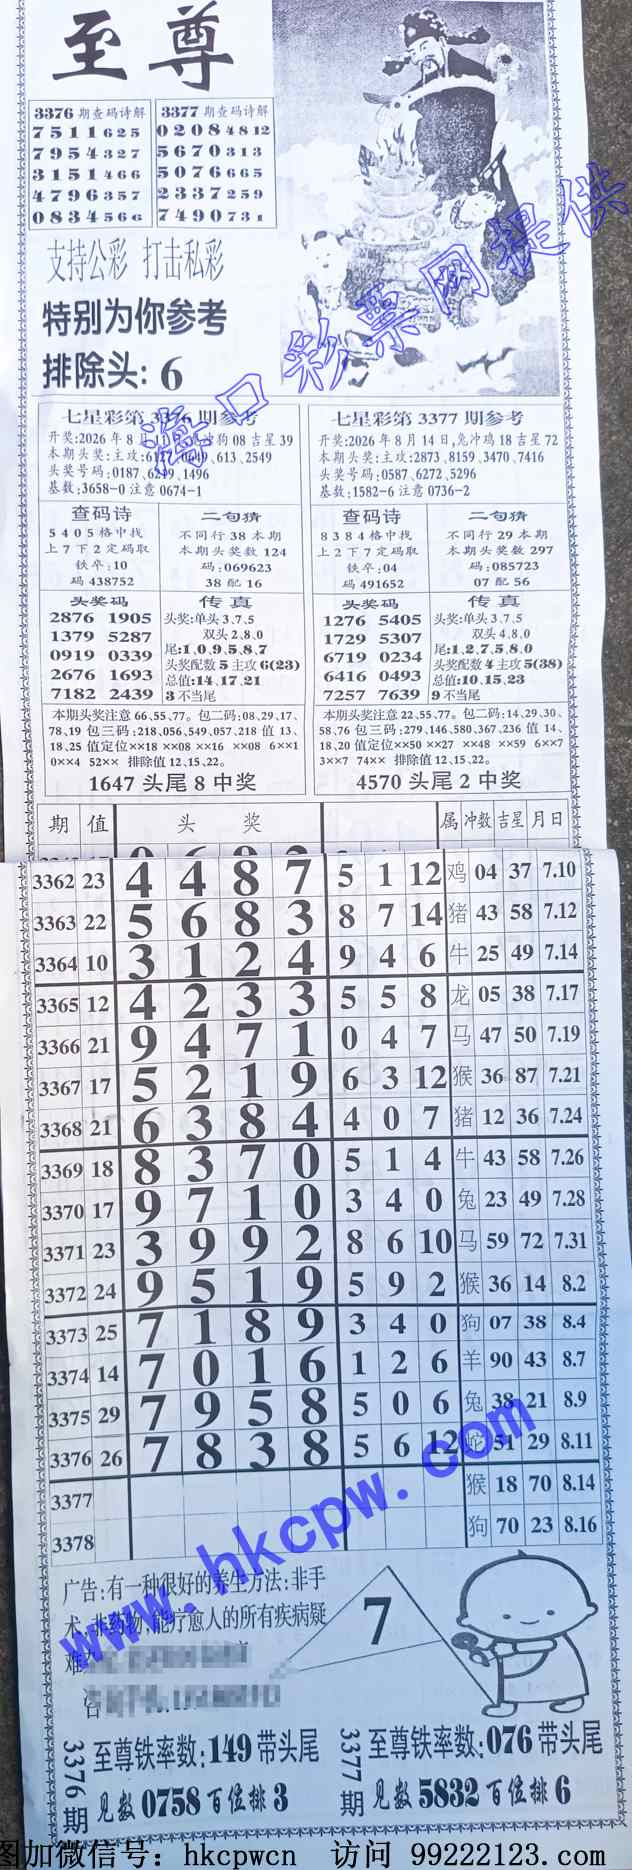 至尊
3376期查码诗解
7511625
7954327
3151466
4796357
0834566
3377期查码诗解
02084812
5670313
5076665
2337259
7490731
支持公彩 打击私彩
特别为你参考
排除头:6
海口彩票网提供
七星彩第3376期参考
开奖:2026年8月11日,
冲狗08吉星39
本期头奖:主攻:6127,0649,613,2549
头奖号码:0187,6249,1496
基数:3658-0 注意 0674-1
查码诗
5405格中找
上7下2定码取
铁卒:10
码 438752
二句猜
不同行38本期
本期头奖数124
码:069623
38配16
头奖码
2876 1905
1379 5287
0919 0339
2676 1693
7182 2439
传真
头奖:单头3.7.5
双头2.8.0
尾:1,0,9,5,8,7
头奖配数5主攻6(23)
总值:14,17,21
3不当尾
本期头奖注意 66,55,77。包二码:08,29,17,
78,19 包三码:218,056,549,057,218 值 13,
18,25 值定位××18 ××08 ××16 ××08 6××1
0××4 52×× 排除值12,15,22。
1647头尾8中奖
七星彩第3377期参考
开奖:2026年8月14日,兔冲鸡18吉星72
本期头奖:主攻:2873,8159,3470,7416
头奖号码:0587,6272,5296
基数:1582-6 注意 0736-2
查码诗
8384格中找
上2下7定码取
铁卒:04
码 491652
二句猜
不同行29本期
本期头奖数297
码:085723
07配56
头奖码
1276 5405
1729 5307
6719 0234
6416 0493
7257 7639
传真
头奖:单头3.7.5
双头4.8.0
尾:1,2,7,5,8,0
头奖配数4主攻5(38)
总值:10,15,23
9不当尾
本期头奖注意 22,55,77。包二码:14,29,30,
58,76 包三码:279,146,580,367,236 值 14,
18,20 值定位××50 ××27 ××48 ××59 6××7
3××7 74×× 排除值12,15,22。
4570头尾2中奖
期 值 头奖 属 冲数 吉星 月日
3362 23 4 4 8 7 5 1 12 鸡 04 37 7.10
3363 22 5 6 8 3 8 7 14 猪 43 58 7.12
3364 10 3 1 2 4 9 4 6 牛 25 49 7.14
3365 12 4 2 3 3 5 5 8 龙 05 38 7.17
3366 21 9 4 7 1 0 4 7 马 47 50 7.19
3367 17 5 2 1 9 6 3 12 猴 36 87 7.21
3368 21 6 3 8 4 4 0 7 猪 12 36 7.24
3369 18 8 3 7 0 5 1 4 牛 43 58 7.26
3370 17 9 7 1 0 3 4 0 兔 23 49 7.28
3371 23 3 9 9 2 8 6 10 马 59 72 7.31
3372 24 9 5 1 9 5 9 2 猴 36 14 8.2
3373 25 7 1 8 9 3 4 0 狗 07 38 8.4
3374 14 7 0 1 6 1 2 6 羊 90 43 8.7
3375 29 7 9 5 8 5 0 6 兔 38 21 8.9
3376 26 7 8 3 8 5 6 12 蛇 51 29 8.11
3377 猴 18 70 8.14
3378 狗 70 23 8.16
www.hkcpw.com
广告:有一种很好的养生方法:非手
术,非药物,能疗愈人的所有疾病疑
难
7
3376期
至尊铁率数:149带头尾
见数0758百位排3
3377期
至尊铁率数:076带头尾
见数5832百位排6
图加微信号: hkcpwcn 访问 99222123.com